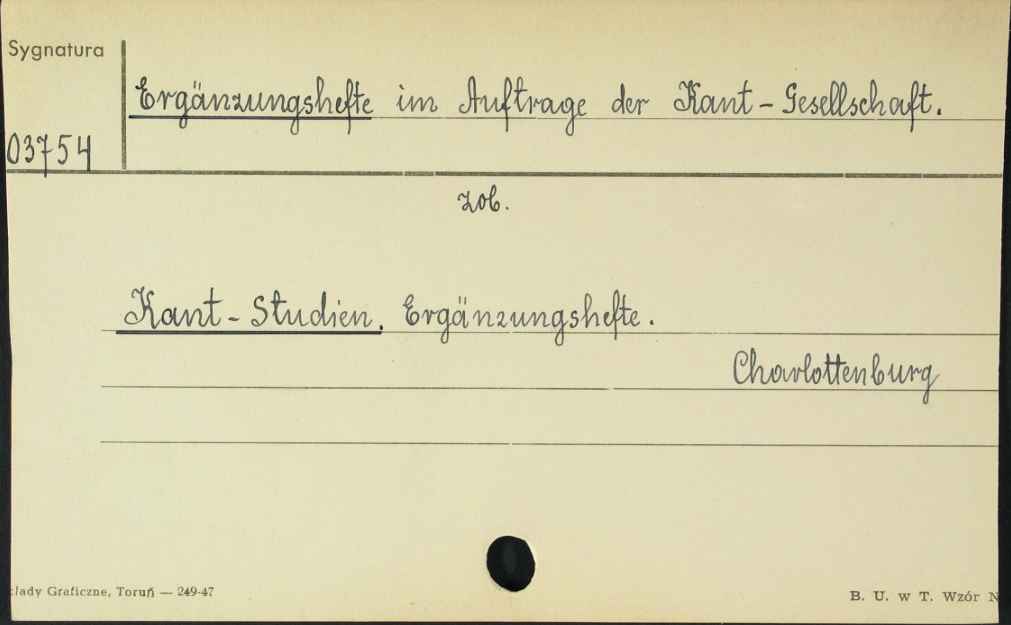 Sygnatura
Ergänzungshefte im Auftrage der Kant-Gesellschaft.
03754
zob.
Kant-Studien. Ergänzungshefte.
Charlottenburg
łady Graficzne, Toruń — 249-47
B. U. w T. Wzór N